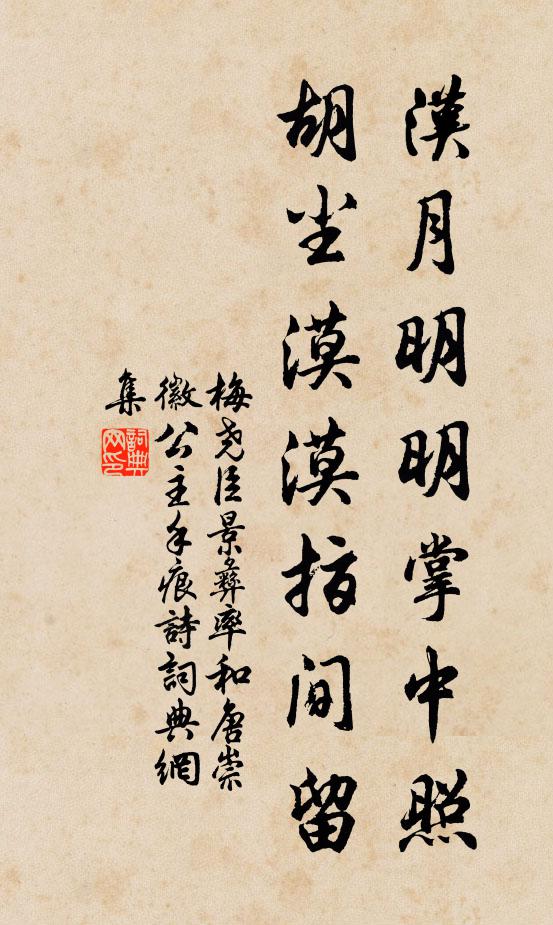 漢月明明掌中照
胡尘漠漠指间留
梅堯臣景彝率和唐崇
徽公主手痕詩詞典網
集
詞典網印